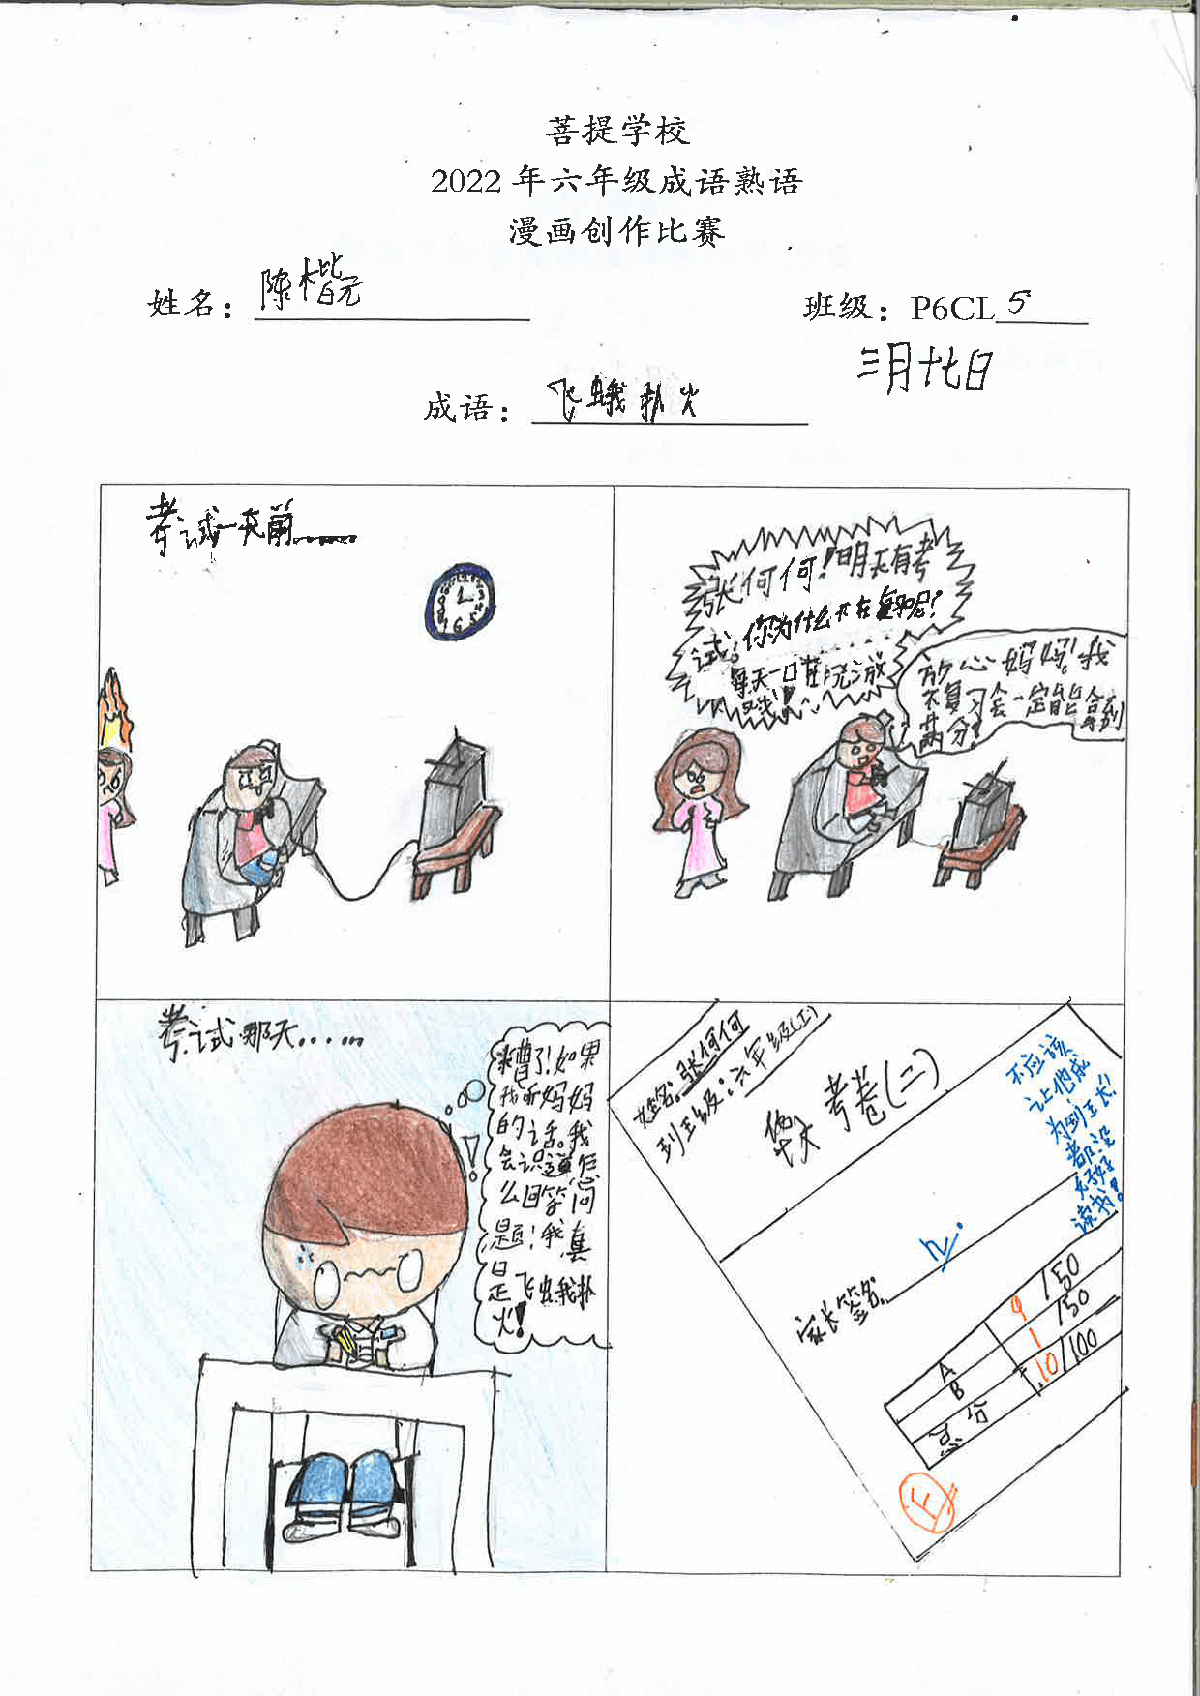 菩提学校
2022 年六年级成语熟语
漫画创作比赛
姓名：陈楷元
班级：P6CL 5
三月十七日
成语：飞蛾扑火
考试一天前......
张何何！明天有考
试！你为什么不在复习呢？
每天
放心妈妈！我
不复习会一定能拿到
满分！
考试那天......
糟了！如果
我听妈妈
的话。我
会知道怎
么回答问
题！我真
是飞蛾扑
火！
姓名：张何何
班级：六年级(1)
考卷(二)
不应该
让他成
为班长！
都没
好好
读书！
家长签名
A 9/50
B 1/50
总分 10/100
F